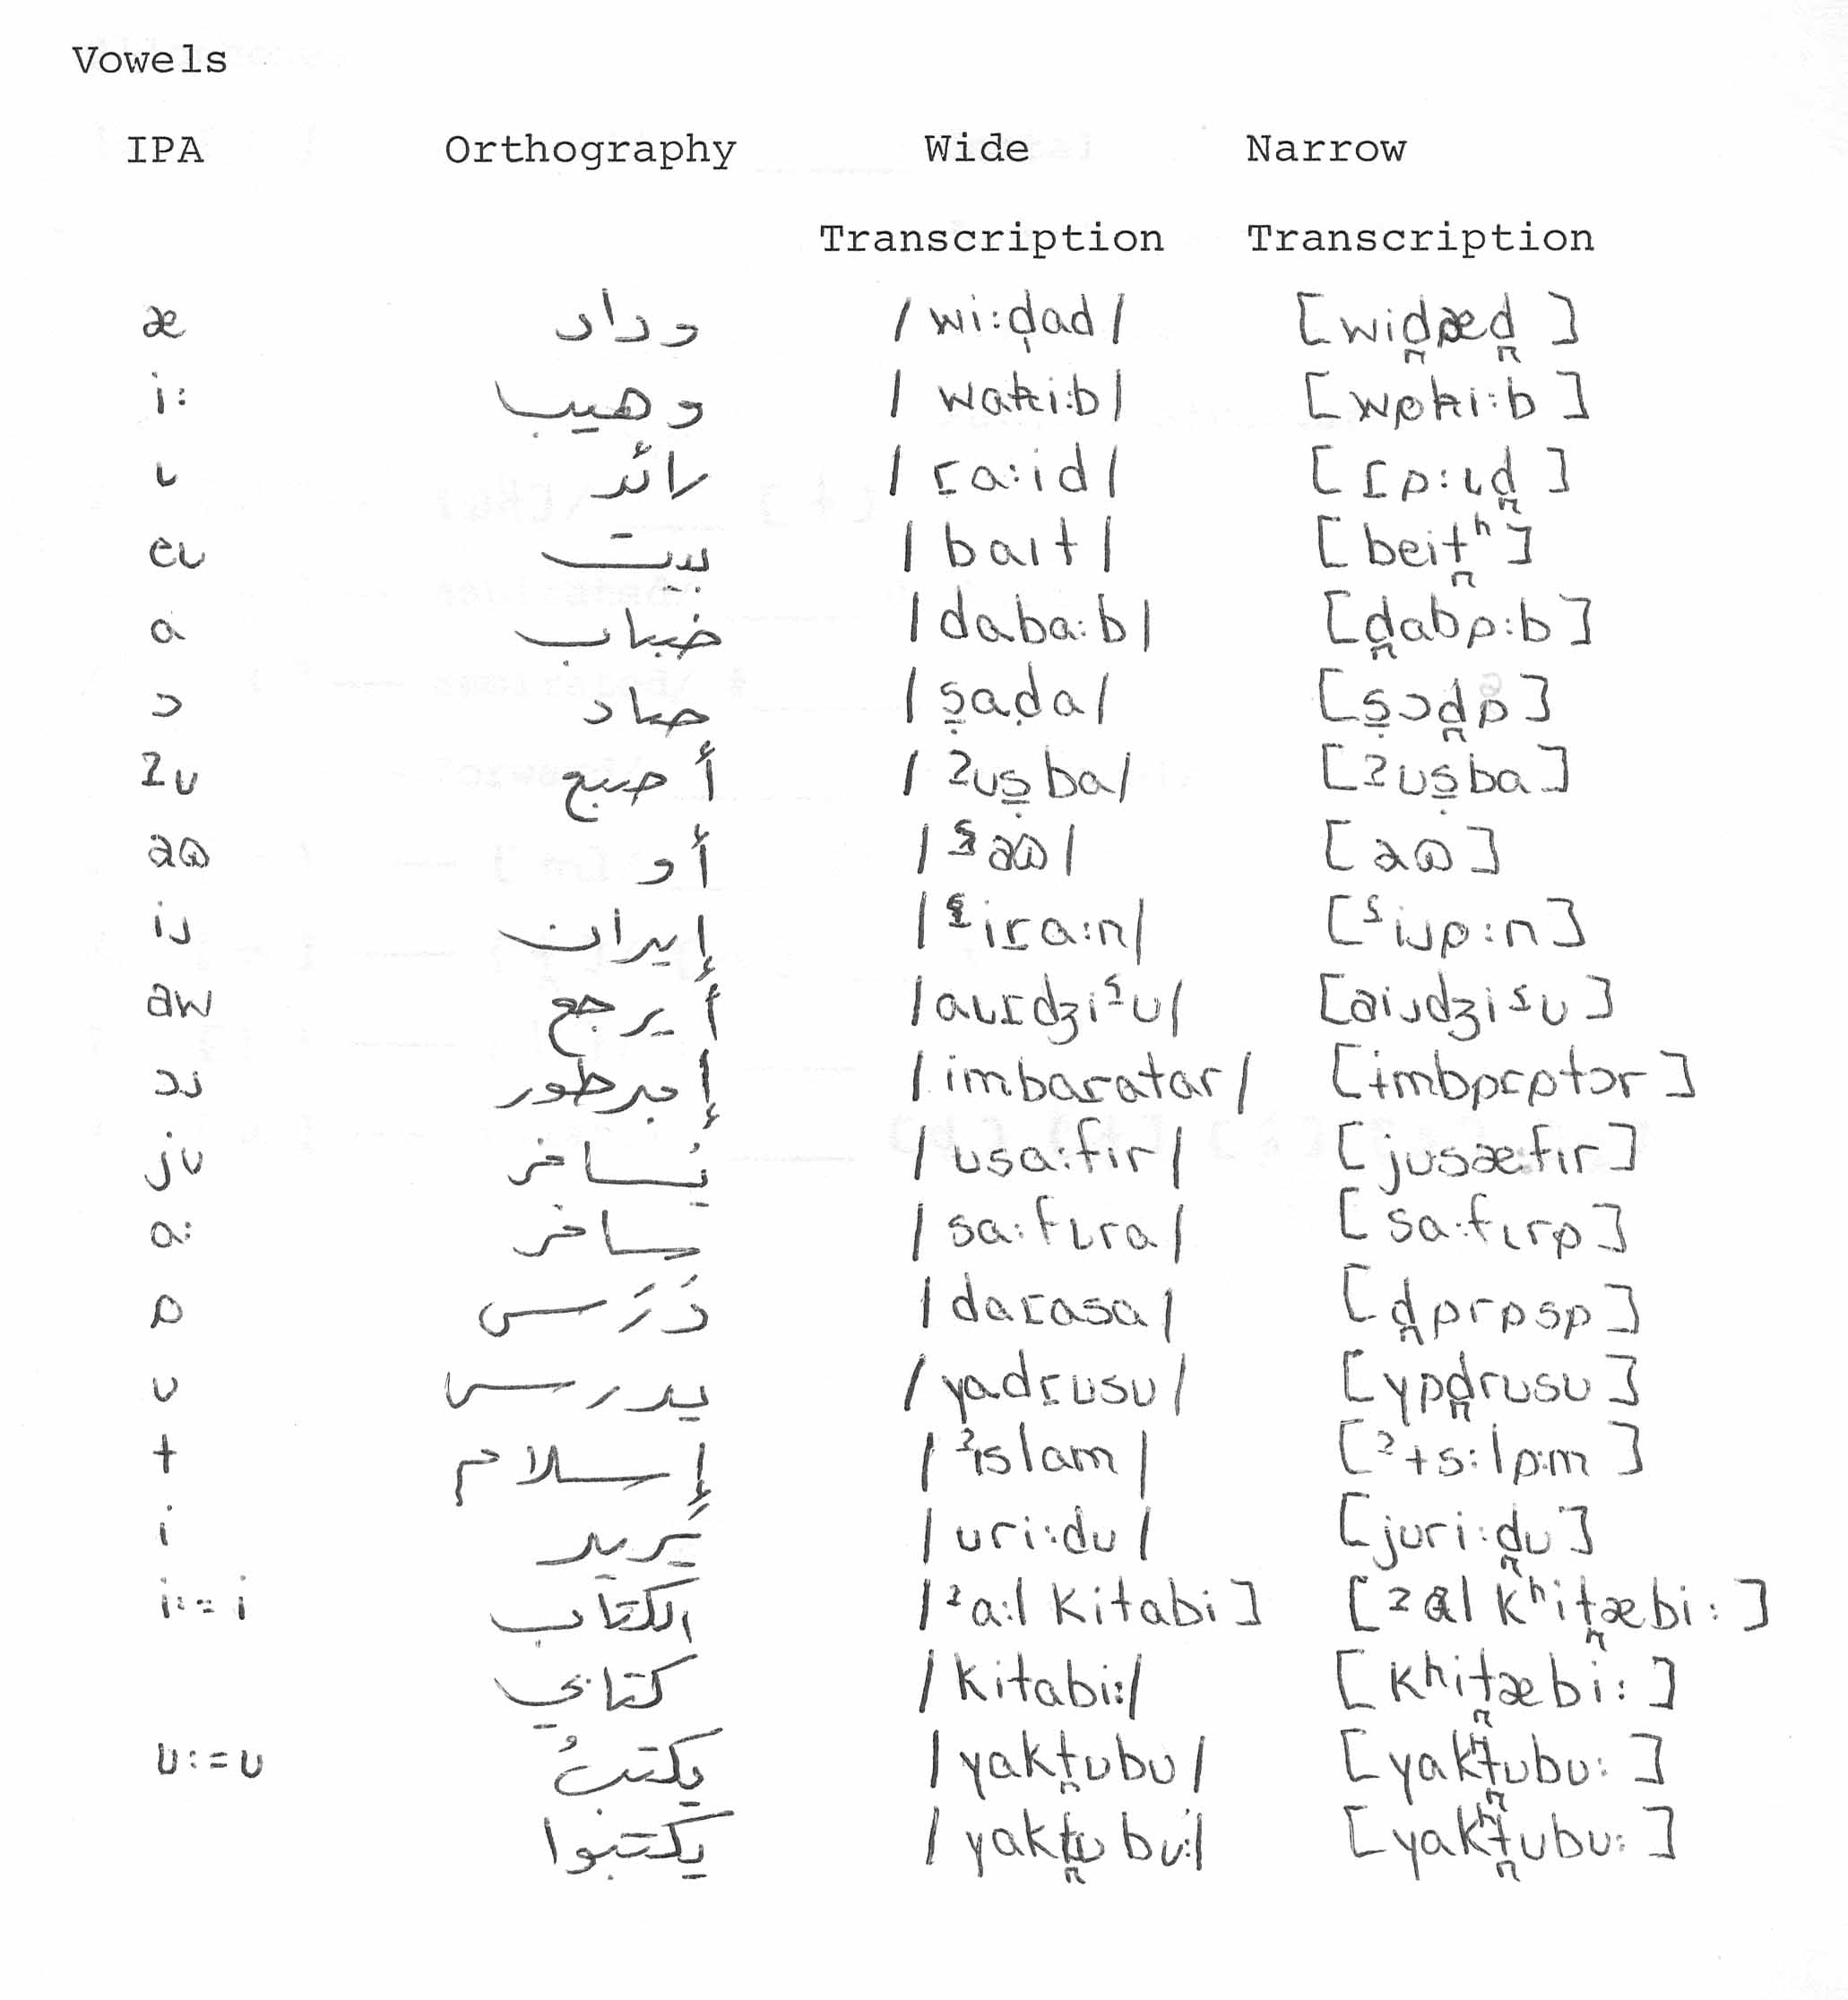 Vowels
IPA Orthography Wide Narrow
Transcription Transcription
æ وداد /wi:ḍad/ [wid̪æd̪]
i: وهيب /waħi:b/ [wɒħi:b]
ɩ رائد /ɾa:id/ [ɾɒ:ɩd̪]
eɩ بيت /baɩt/ [beit̪ʰ]
a ضباب /daba:b/ [d̪abɒ:b]
ɔ صاد /ṣaḍa/ [ṣɔd̪ɒ]
ʔu أصبح /ʔuṣba/ [ʔuṣba]
أو
iɹ إيران /ira:n/ [ˤiɹɒ:n]
aw أيرجع /aɩɾdʒiˤu/ [aiɹdʒiˤu]
ɔɹ إمبرطور /imbaɾatar/ [ɨmbɒɾɒtɔr]
ju يُسافر /usa:fir/ [jusæ:fɪr]
a: سافر /sa:fɩra/ [sa:fɩrɒ]
ɒ دَرَس /daɾasa/ [d̪ɒrɒsɒ]
u يدرس /yadɾusu/ [yɒd̪rusu]
ɨ إسلام /ʔislam/ [ʔɨs:lɒ:m]
i يُريد /uri:du/ [juri:d̪u]
i:=i الكتاب /ʔa:l kitabi] [ʔal kʰit̪æbi:]
كتابي /kitabi:/ [kʰit̪æbi:]
u:=u يكتبُ /yakt̪ubu/ [yakʰt̪ubu:]
يكتبوا /yakt̪u bu:/ [yakʰt̪ubu:]